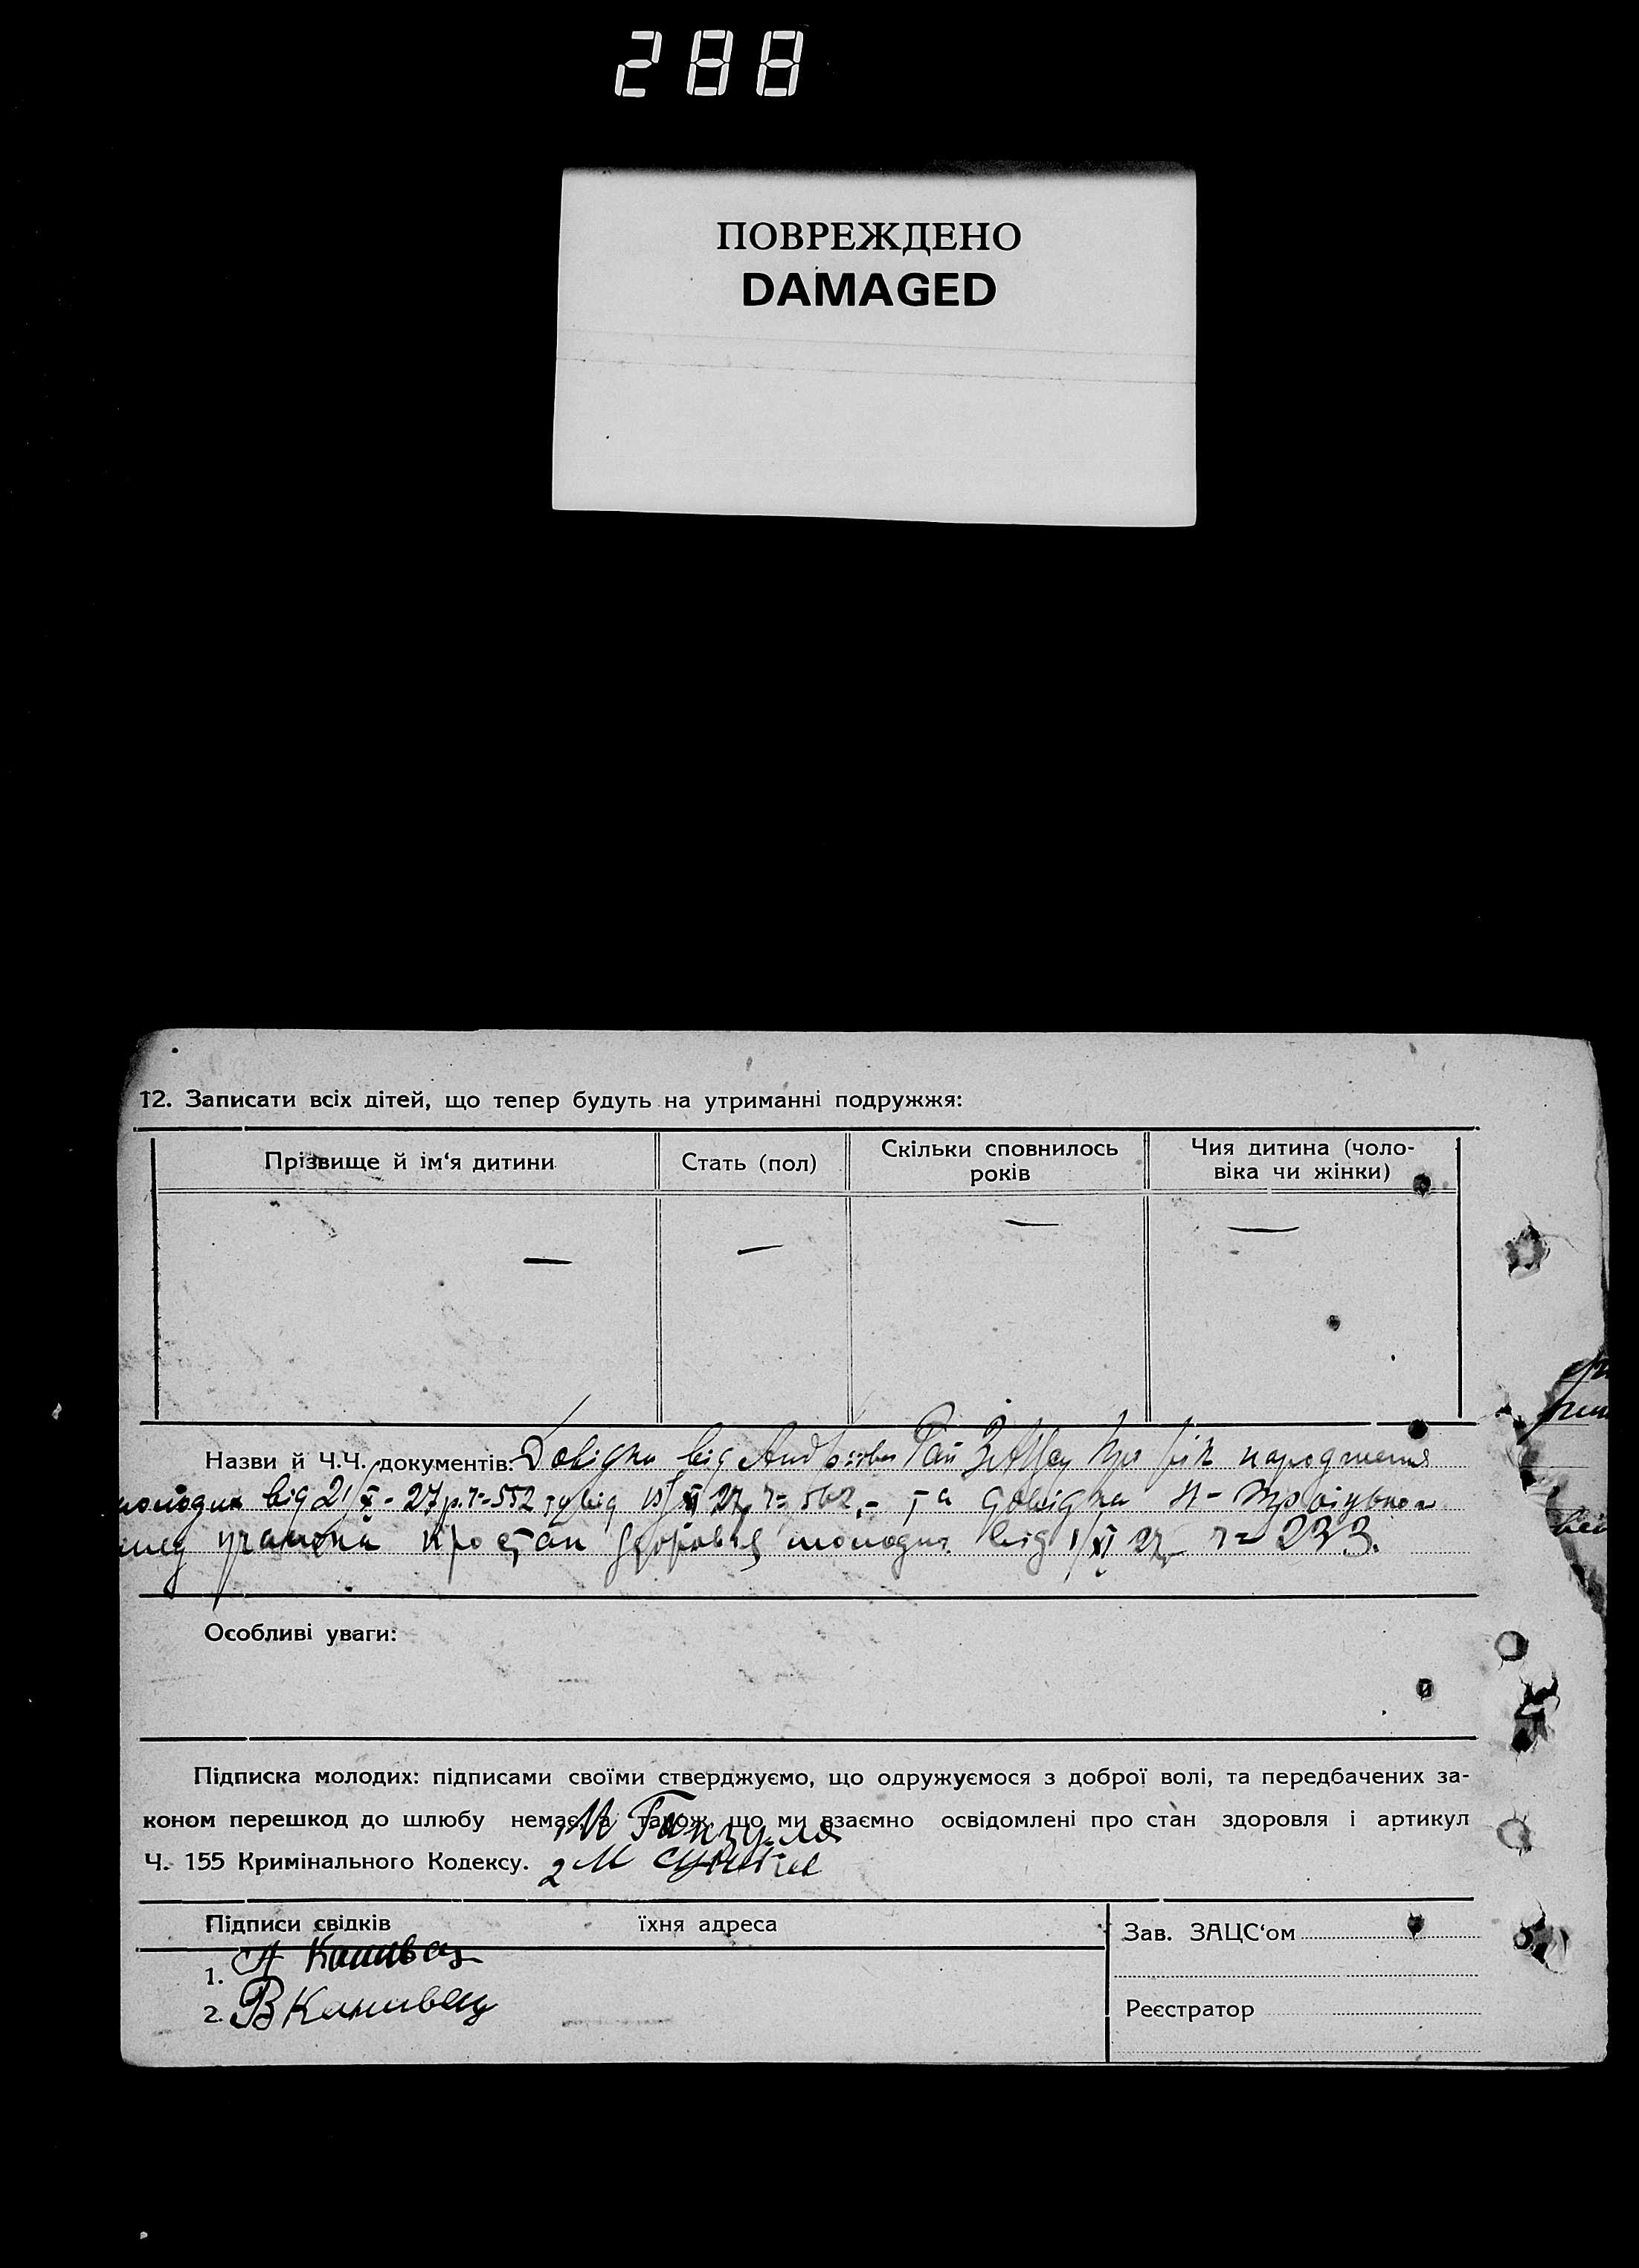 288
ПОВРЕЖДЕНО
DAMAGED
12. Записати всіх дітей, що тепер будуть на утриманні подружжя:
Прізвище й ім‘я дитини
Стать (пол)
Скільки сповнилось
років
Чия дитина (чоло-
віка чи жінки)
— — — —
Назви й Ч.Ч. документів: Довідки від народження
молодих від 21/X - 27 р. ч= 552 від XI 27 ч= та довідка
про стан здоровья молодих від 1/XI 27 ч= 233.
Особливі уваги:
Підписка молодих: підписами своїми стверджуємо, що одружуємося з доброї волі, та передбачених за-
коном перешкод до шлюбу немає, а також що ми взаємно освідомлені про стан здоровля і артикул
Ч. 155 Кримінального Кодексу. 2 М
Підписи свідків їхня адреса
1. А Канивец
2. В Канивец
Зав. ЗАЦС‘ом
Реєстратор